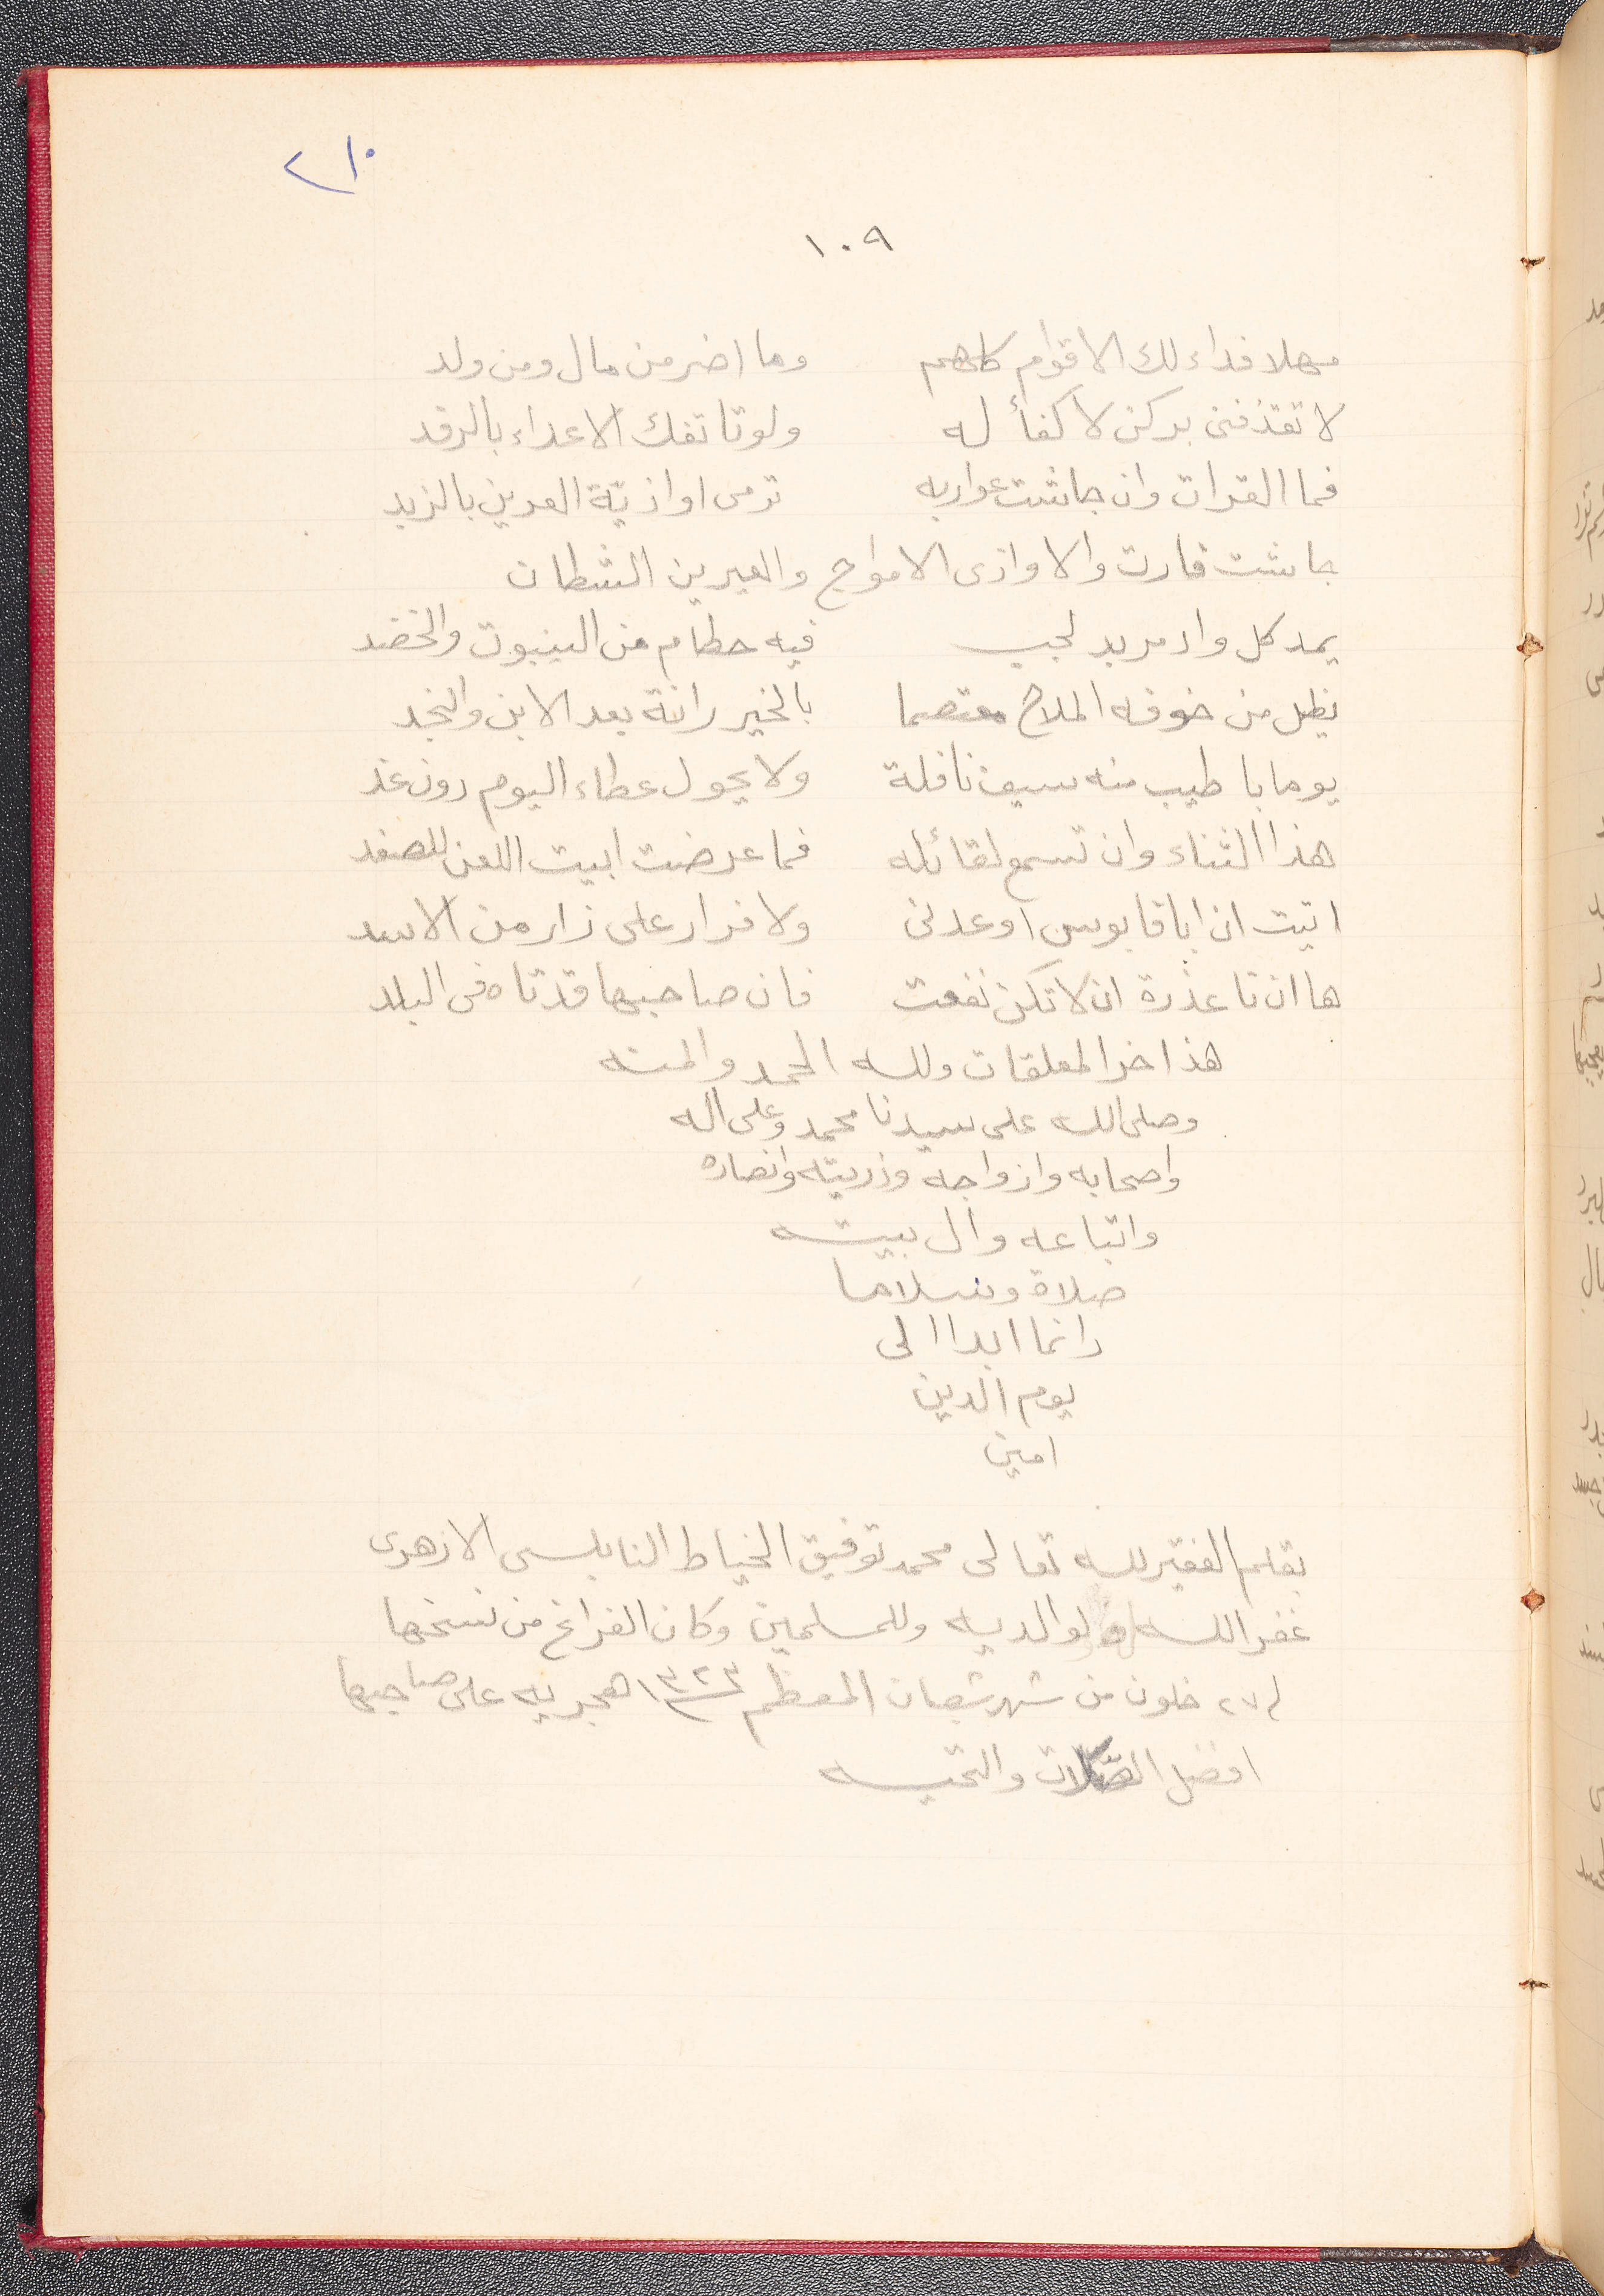 ٢١٠
١٠٩
مهلا فداء لك الاقوام كلهم وما اضر من مال ومن ولد
لا تقذفنى بركن لا كفأ له ولو تاتفك الاعداء بالرفد
فما الفرات وان جاشت غواربه ترمى اواذيّة العبرين بالزبد
جاشت فارت والاواذى الامواج والعبرين الشطان
يمد كل واد مربد لجب فيه حطام من الينبوت والخضد
يظل من خوفه الملاح معتصما بالخيزرانة بعد الاين والنجد
يوما باطيب منه سيف نافلة ولا يحول عطاء اليوم دون غد
هذا الثناء وان تسمع لقائله فما عرضت ابيت اللعن للصفد
انبت ان ابا قابوس اوعدنى ولا قرار على زار من الاسد
ها ان تا عذرة ان لا تكن نفعت فان صاحبها قد تاه فى البلد
هذا اخر المعلقات ولله الحمد والمنه
وصلى الله على سيدنا محمد وعلى اله
واصحابه وازواجه وذريته وانصاره
واتباعه وال بيته
صلاة وسلاما
دائما ابدا الى
يوم الدين
امين
بقلم الفقير لله تعالى محمد توفيق الخياط النابلسى الازهرى
غفر الله له ولوالديه وللمسلمين وكان الفراغ من نسخها
ل٢٧ خلون من شهر شعبان المعظم ١٣٢٣ هجريه على صاحبها
افضل الصّلات والتحيه